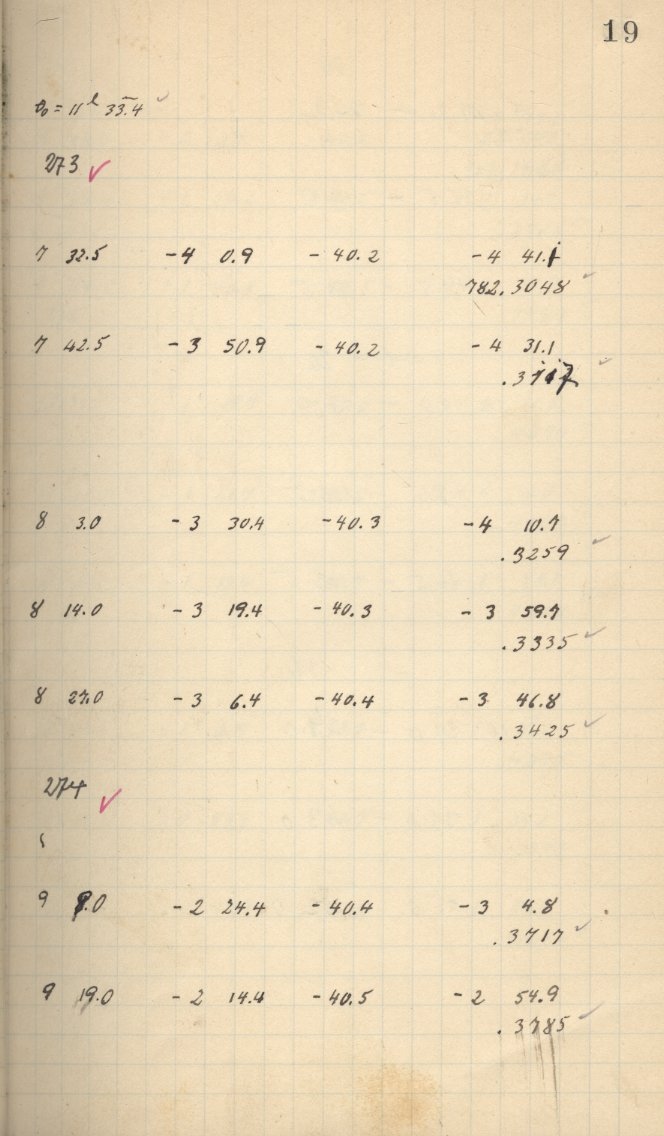 19
θ₀ = 11ʰ 33.4 ✓
273 ✓
7 32.5 -4 0.9 -40.2 -4 41.1
782.3048 ✓
7 42.5 -3 50.9 -40.2 -4 31.1
.3117 ✓
8 3.0 -3 30.4 -40.3 -4 10.7
.3259 ✓
8 14.0 -3 19.4 -40.3 -3 59.7
.3335 ✓
8 27.0 -3 6.4 -40.4 -3 46.8
.3425 ✓
274 ✓
9 9.0 -2 24.4 -40.4 -3 4.8
.3717 ✓
9 19.0 -2 14.4 -40.5 -2 54.9
.3785 ✓